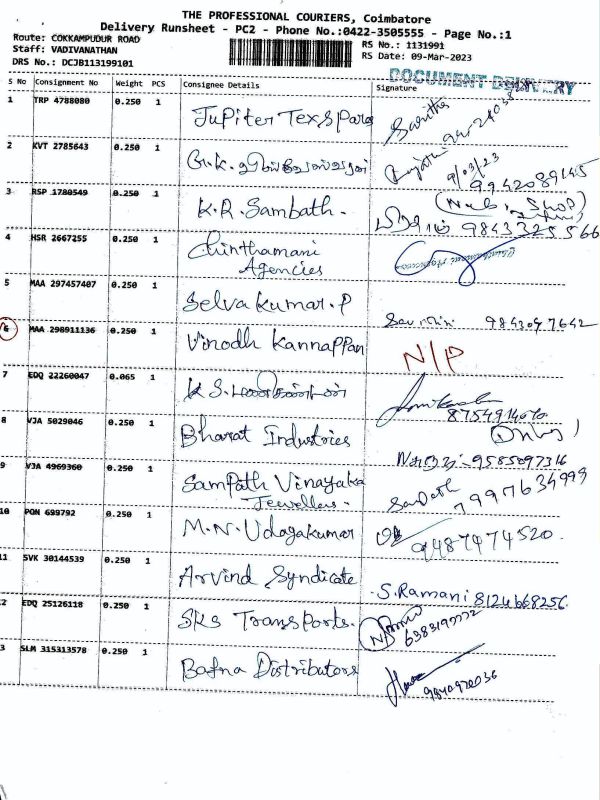 THE PROFESSIONAL COURIERS, Coimbatore
Delivery Runsheet - PC2 - Phone No.:0422-3505555 - Page No.:1
Route: COKKAMPUDUR ROAD
Staff: VADIVANATHAN
DRS No.: DCJB113199101
RS No.: 1131991
RS Date: 09-Mar-2023
DOCUMENT DELIVERY
S No Consignment No Weight PCS Consignee Details Signature
1 TRP 4788080 0.250 1 Jupiter Tex Spares
2 KVT 2785643 0.250 1
9/03/23
9942089145
3 RSP 1780549 0.250 1 K.R. Sambath.
9843325566
4 HSR 2667255 0.250 1 Chinthamani
Agencies
5 MAA 297457407 0.250 1 Selvakumar.P
6 MAA 298911136 0.250 1 Vinodh Kannappan N/P
7 EDQ 22260047 0.065 1
8 VJA 5029046 0.250 1 Bharat Industries
9585097316
9 VJA 4969360 0.250 1 Sampath Vinayaka
Jewellers. 7997634999
10 PON 699792 0.250 1 M.N. Udayakumar 9487474520.
11 SVK 30144539 0.250 1 Arvind Syndicate S.Ramani 8124668256.
2 EDQ 25126118 0.250 1 SKS Transports.
3 SLM 315313578 0.250 1 Bafna Distributors